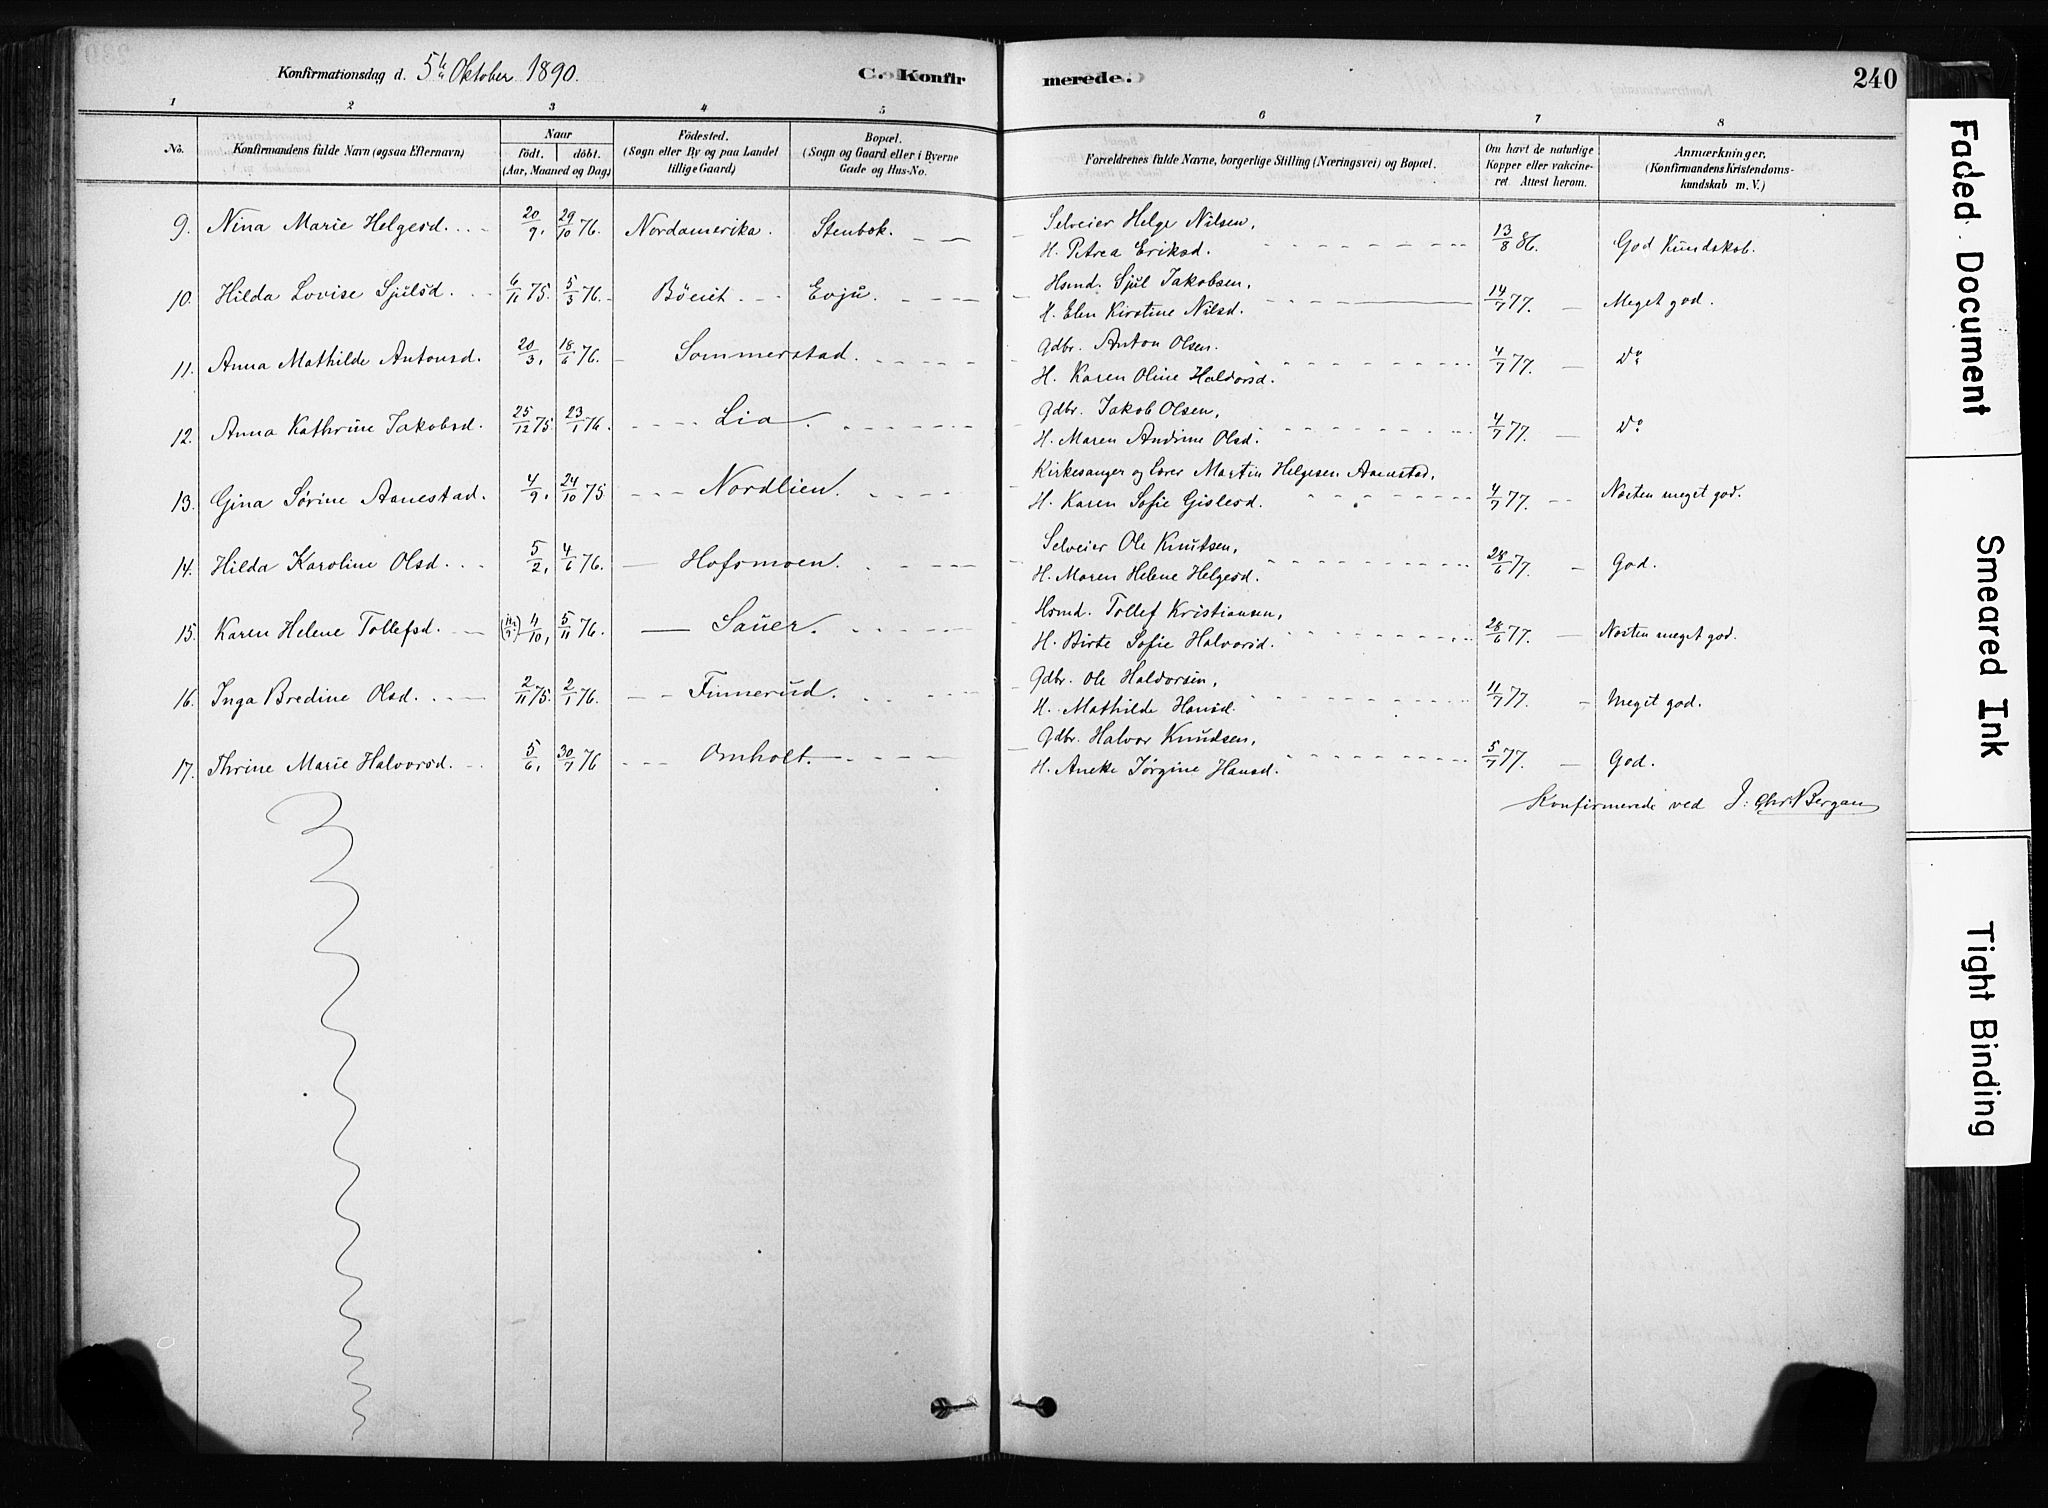 Konfirmationsdag d. 5te Oktober 1890.
C. Konfirmerede.
240
1 2 3 4 5 6 7 8
No.
Konfirmandens fulde Navn (ogsaa Efternavn)
Naar födt. döbt. (Aar, Maaned og Dag)
Födested. (Sogn eller By og paa Landet tillige Gaard)
Bopæl. (Sogn og Gaard eller i Byerne Gade og Hus-No.
Forældrenes fulde Navne, borgerlige Stilling (Næringsvei) og Bopæl.
Om havt de naturlige Kopper eller vakcineret. Attest herom.
Anmærkninger. (Konfirmandens Kristendomskundskab m. V.)
9. Nina Marie Helgesd. 20/9, 29/10 76. Nordamerika. Stenbok. Selveier Helge Nilsen, 13/8 86. God Kundskab.
H. Petrea Eriksd.
10. Hilda Lovise Sjulsd. 6/11 75. 5/3 76. Böeiet Evju. Hsmd. Sjul Jakobsen, 14/7 77. Meget god.
H. Elen Kirstine Nilsd.
11. Anna Mathilde Antonsd. 20/3, 18/6 76. Sommerstad. Gdbr. Anton Olsen. 4/7 77. Do
H. Karen Oline Haldorsd.
12. Anna Kathrine Jakobsd. 25/12 75. 23/1 76. Lia. Gdbr. Jakob Olsen, 4/7 77. Do
H. Maren Andrine Olsd.
13. Gina Sørine Aanestad. 4/9, 24/10 75 Nordlien. Kirkesanger og Lærer Martin Helgesen Aanestad, 4/7 77. Næsten meget god.
H. Karen Sofie Gislesd.
14. Hilda Karoline Olsd. 5/2, 4/6 76. Hofsmoen. Selveier Ole Knutsen, 28/6 77. God.
H. Maren Helene Helgesd.
15. Karen Helene Tollefsd. 4/10, 5/11 76. Sauer. Hsmd. Tollef Kristiansen, 28/6 77. Næsten meget god.
H. Birte Sofie Halvorsd.
16. Inga Bredine Olsd. 2/11 75. 2/1 76. Finnerud. Gdbr. Ole Haldorsen, 4/7 77. Meget god.
H. Mathilde Hansd.
17. Thrine Marie Halvorsd. 5/6, 30/7 76 Omholt. Gdbr. Halvor Knudsen, 5/7 77. God.
H. Aneke Jørgine Hansd.
Konfirmerede ved J: Chr. Bergan
Faded Document
Smeared Ink
Tight Binding